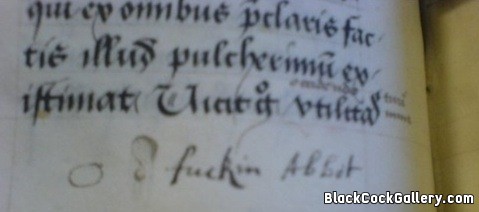 qui ex omnibus p̄claris fac-
tis illud pulcherimū ex-
istimat Vicit utilitas
O d fuckin Abbot
BlackCockGallery.com